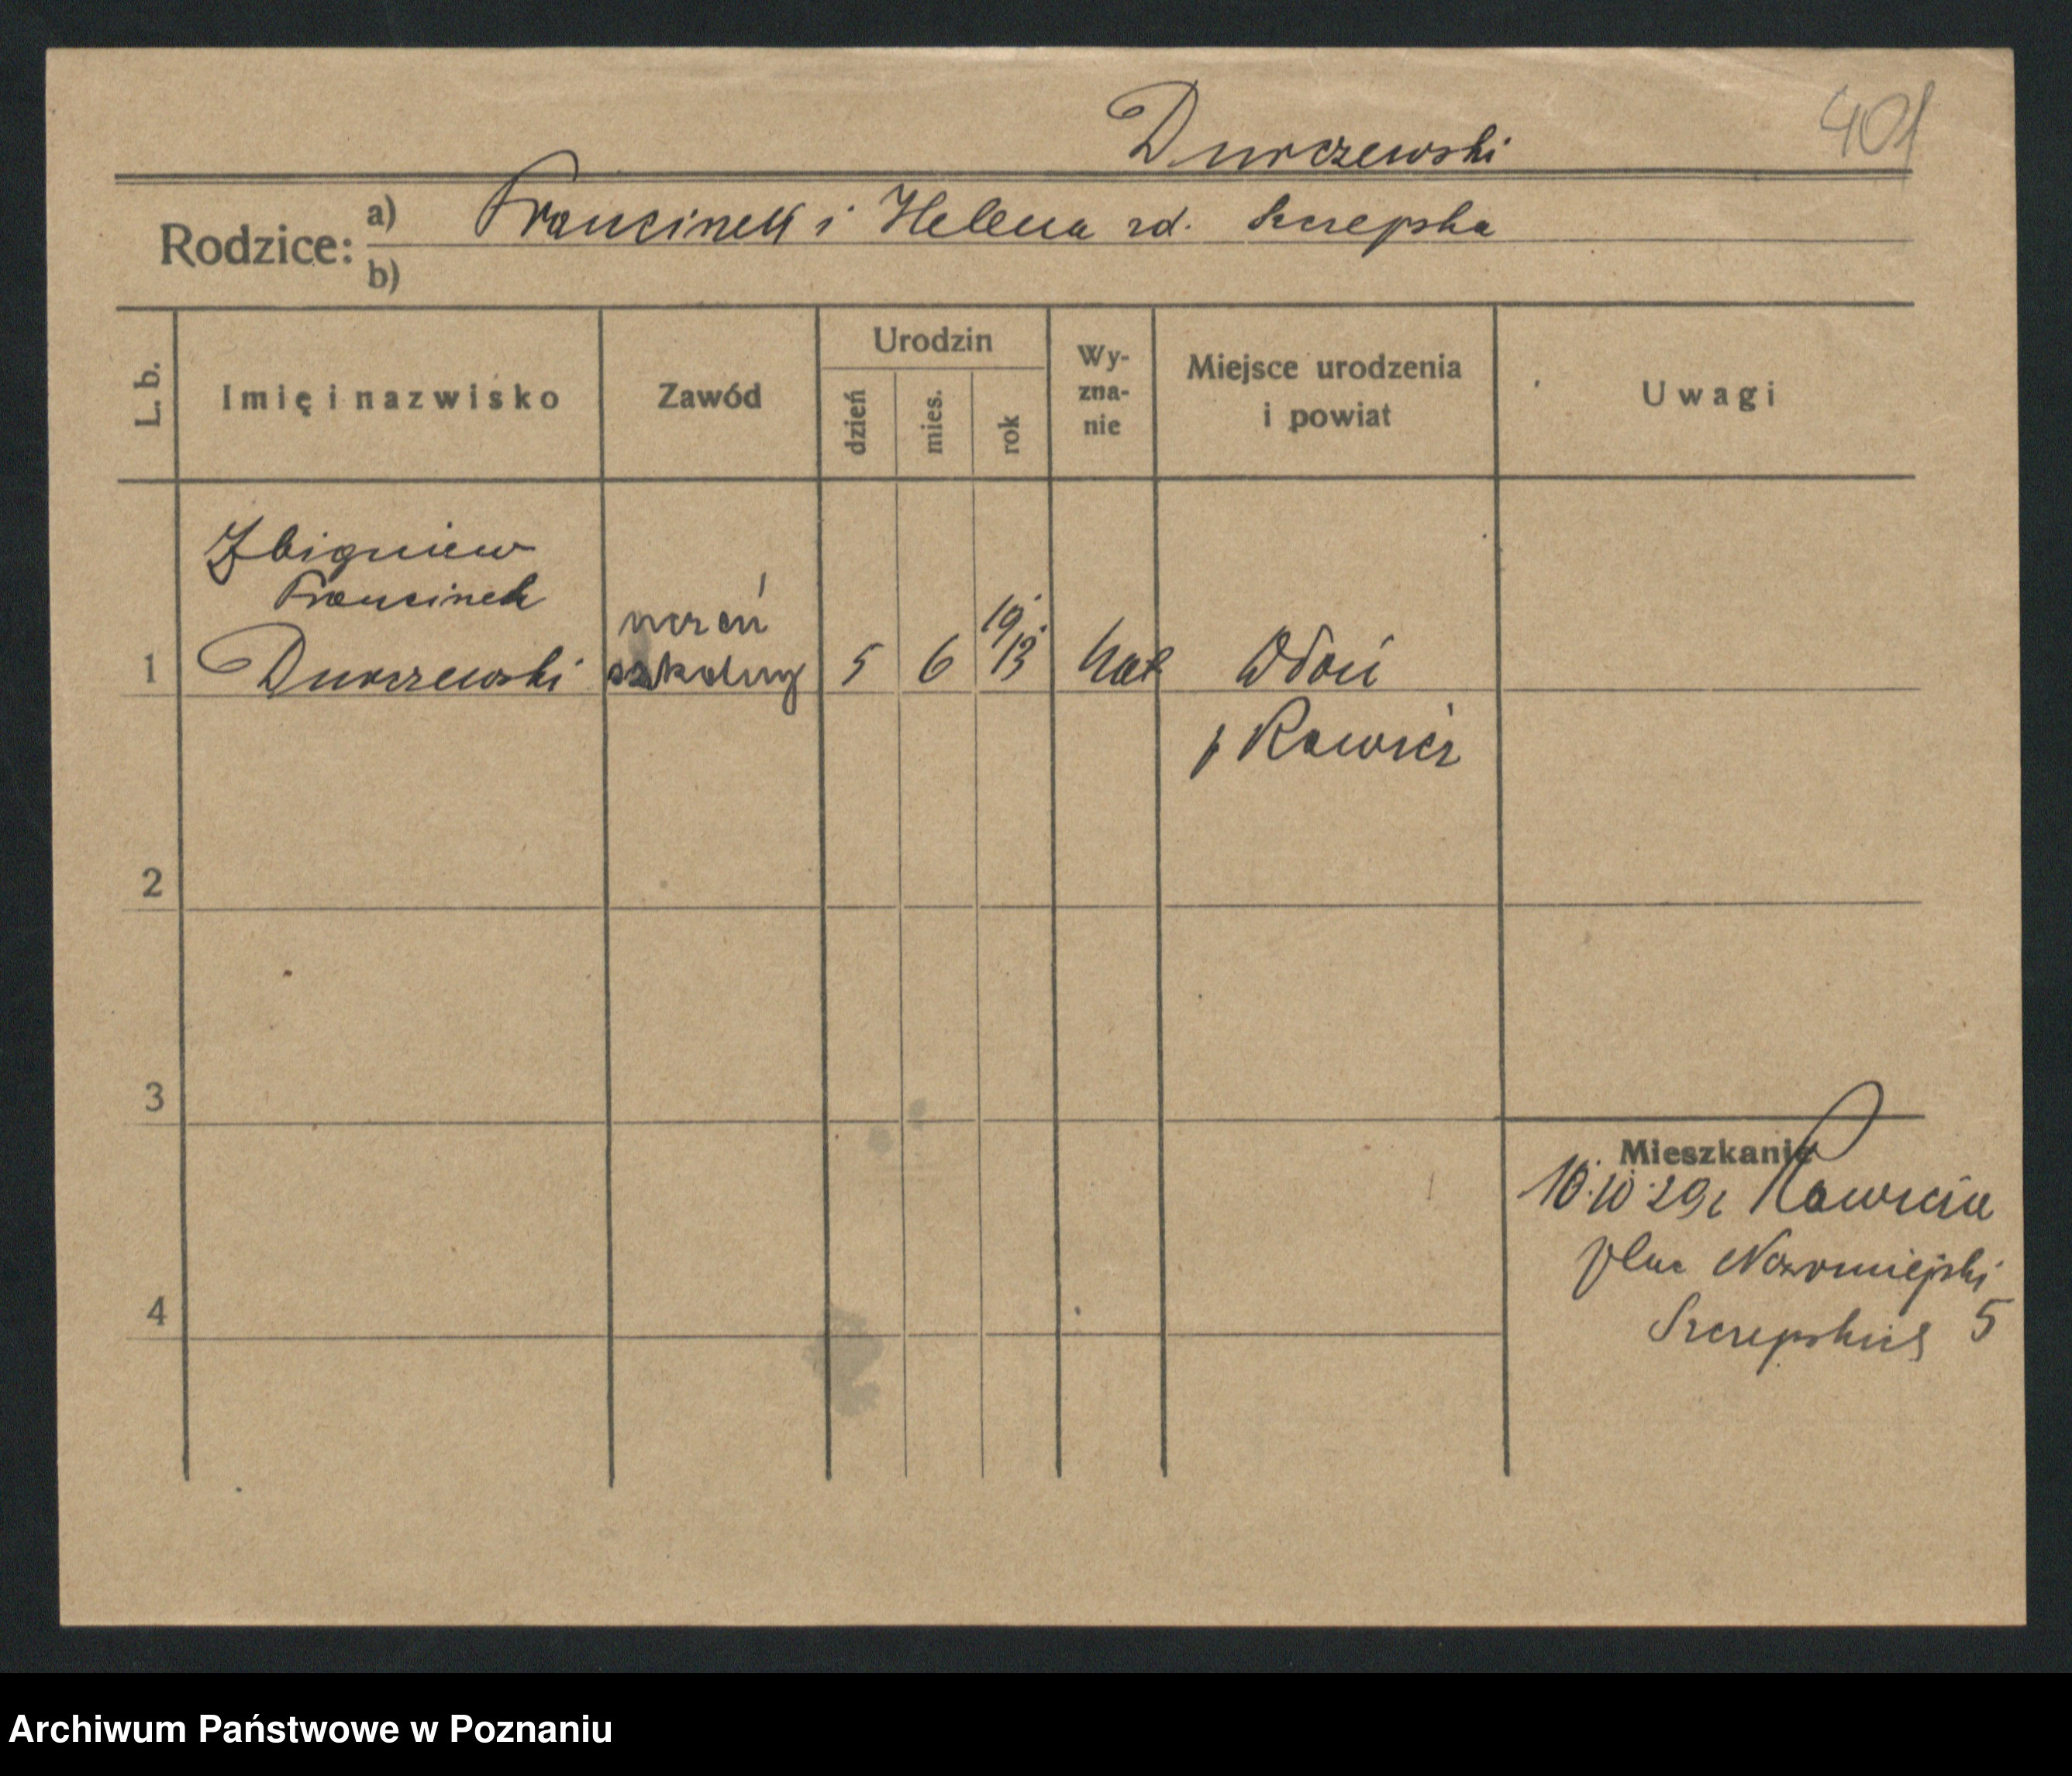 401
Durczewski
Rodzice: a) Franciszek i Helena zd. Szczepska
b)
L. b.
Imię i nazwisko
Zawód
Urodzin
dzień
mies.
rok
Wy-
zna-
nie
Miejsce urodzenia
i powiat
Uwagi
Zbigniew
Franciszek
1 Durczewski
uczeń
szkolny
5
6
19
13
kat
p Rawicz
2
3
4
Mieszkanie
10.10.29 z Rawicza
plac Nowomiejski
5
Archiwum Państwowe w Poznaniu